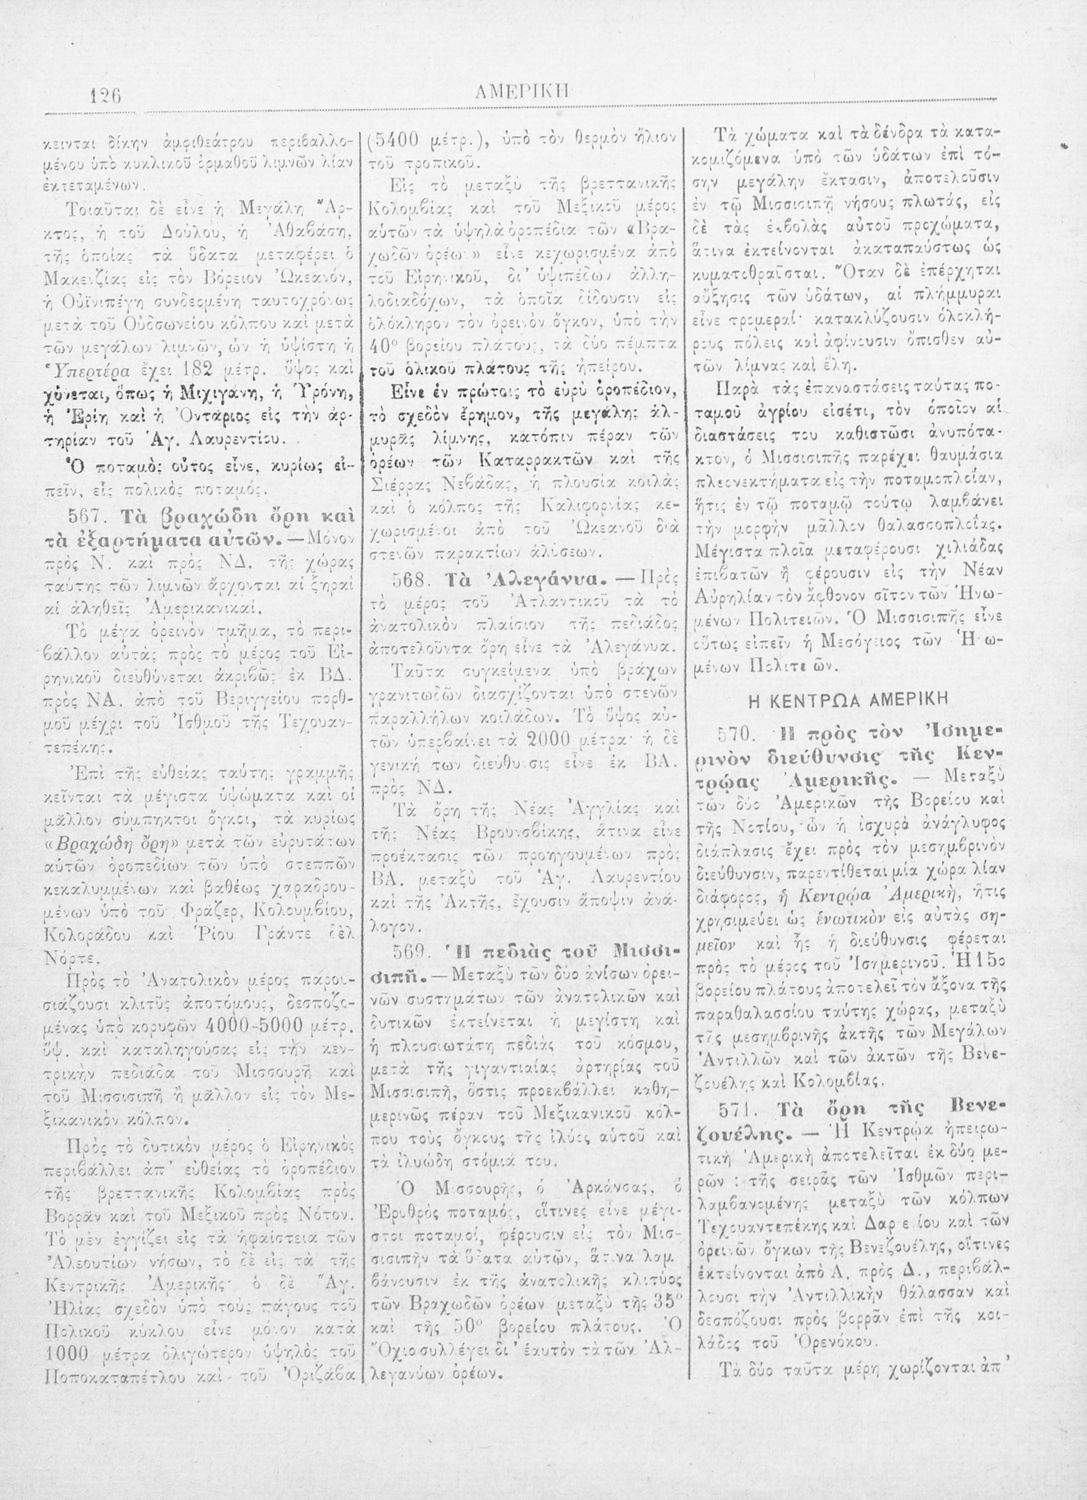 126
ΑΜΕΡΙΚΗ
κεινται δίκην ἀμφιθεάτρου περιβαλλο-
μένου ὑπὸ κυκλικοῦ ὁρμαθοῦ λιμνῶν λίαν
ἐκτεταμένων.
Τοιαῦται δὲ εἶνε ἡ Μεγάλη Ἄρ-
κτος, ἡ τοῦ Δούλου, ἡ Ἀθαβάση,
τῆς ὁποίας τὰ ὕδατα μεταφέρει ὁ
Μακενζίας εἰς τὸν Βόρειον Ὠκεανόν,
ἡ Οὐϊνιπέγη συνδεομένη ταυτοχρόνως
μετὰ τοῦ Οὐδσωνείου κόλπου καὶ μετὰ
τῶν μεγάλων λιμνῶν, ὧν ἡ ὑψίστη ἡ
Ὑπερτέρα ἔχει 182 μέτρ. ὕψος καὶ
χύνεται, ὅπως ἡ Μιχιγάνη, ἡ Ὑρόνη,
ἡ Ἐρίη καὶ ἡ Ὀντάριος εἰς τὴν ἀρ-
τηρίαν τοῦ Ἁγ. Λαυρεντίου.
Ὁ ποταμὸς οὗτος εἶνε, κυρίως εἰ-
πεῖν, εἷς πολικὸς ποταμός.
567. Τὰ βραχώδη ὄρη καὶ
τὰ ἐξαρτήματα αὐτῶν.—Μόνον
πρὸς Ν. καὶ πρὸς ΝΔ. τῆς χώρας
ταύτης τῶν λιμνῶν ἄρχονται αἱ ξηραὶ
αἱ ἀληθεῖς Ἀμερικανικαί.
Τὸ μέγα ὀρεινὸν τμῆμα, τὸ περι-
βάλλον αὐτὰς πρὸς τὸ μέρος τοῦ Εἰ-
ρηνικοῦ διευθύνεται ἀκριβῶς ἐκ ΒΔ.
πρὸς ΝΑ. ἀπὸ τοῦ Βεριγγείου πορθ-
μοῦ μέχρι τοῦ Ἰσθμοῦ τῆς Τεχουαν-
τεπέκης.
Ἐπὶ τῆς εὐθείας ταύτης γραμμῆς
κεῖνται τὰ μέγιστα ὑψώματα καὶ οἱ
μᾶλλον συμπηκτοι ὄγκοι, τὰ κυρίως
«Βραχώδη ὄρη» μετὰ τῶν εὐρυτάτων
αὐτῶν ὀροπεδίων τῶν ὑπὸ στεππῶν
κεκαλυμμένων καὶ βαθέως χαραδρου-
μένων ὑπὸ τοῦ Φράζερ, Κολουμβίου,
Κολοράδου καὶ Ῥίου Γράντε δὲλ
Νόρτε.
Πρὸς τὸ Ἀνατολικὸν μέρος παρου-
σιάζουσι κλιτῦς ἀποτόμους, δεσποζο-
μένας ὑπὸ κορυφῶν 4000-5000 μέτρ.
ὕψ. καὶ καταληγούσας εἰς τὴν κεν-
τρικὴν πεδιάδα τοῦ Μισσουρῆ καὶ
τοῦ Μισσισιπῆ ἢ μᾶλλον εἰς τὸν Με-
ξικανικὸν κόλπον.
Πρὸς τὸ δυτικὸν μέρος ὁ Εἰρηνικὸς
περιβάλλει ἀπ' εὐθείας τὸ ὀροπέδιον
τῆς βρεττανικῆς Κολομβίας πρὸς
Βορρᾶν καὶ τοῦ Μεξικοῦ πρὸς Νότον.
Τὸ μὲν ἐγγίζει εἰς τὰ ἡφαίστεια τῶν
Ἀλεουτίων νήσων, τὸ δὲ εἰς τὰ τῆς
Κεντρικῆς Ἀμερικῆς· ὁ δὲ Ἅγ.
Ἠλίας σχεδὸν ὑπὸ τοὺς πάγους τοῦ
Πολικοῦ κύκλου εἶνε μόνον κατὰ
1000 μέτρα ὀλιγώτερον ὑψηλὸς τοῦ
Ποποκαταπέτλου καὶ τοῦ Ὀριζάβα
(5400 μέτρ.), ὑπὸ τὸν θερμὸν ἥλιον
τοῦ τροπικοῦ.
Εἰς τὸ μεταξὺ τῆς βρεττανικῆς
Κολομβίας καὶ τοῦ Μεξικοῦ μέρος
αὐτῶν τὰ ὑψηλὰ ὀροπέδια τῶν «Βρα-
χωδῶν ὀρέων» εἶνε κεχωρισμένα ἀπὸ
τοῦ Εἰρηνικοῦ, δι' ὑψιπέδων ἀλλη-
λοδιαδόχων, τὰ ὁποῖα δίδουσιν εἰς
ὁλόκληρον τὸν ὀρεινὸν ὄγκον, ὑπὸ τὴν
40° βορείου πλάτους, τὰ δύο πέμπτα
τοῦ ὁλικοῦ πλάτους τῆς ἠπείρου.
Εἶνε ἐν πρώτοις τὸ εὐρὺ ὀροπέδιον,
τὸ σχεδὸν ἔρημον, τῆς μεγάλης ἁλ-
μυρᾶς λίμνης, κατόπιν πέραν τῶν
ὀρέων τῶν Καταρρακτῶν καὶ τῆς
Σιέρρας Νεβάδας, ἡ πλουσία κοιλὰς
καὶ ὁ κόλπος τῆς Καλιφορνίας κε-
χωρισμένοι ἀπὸ τοῦ Ὠκεανοῦ διὰ
στενῶν παρακτίων ἁλύσεων.
568. Τὰ Ἀλεγάνυα. —Πρὸς
τὸ μέρος τοῦ Ἀτλαντικοῦ τὰ τὸ
ἀνατολικὸν πλαίσιον τῆς πεδιάδος
ἀποτελοῦντα ὄρη εἶνε τὰ Ἀλεγάνυα.
Ταῦτα συγκείμενα ὑπὸ βράχων
γρανιτωδῶν διασχίζονται ὑπὸ στενῶν
παραλλήλων κοιλάδων. Τὸ ὕψος αὐ-
τῶν ὑπερβαίνει τὰ 2000 μέτρα· ἡ δὲ
γενική των διεύθυνσις εἶνε ἐκ ΒΑ.
πρὸς ΝΔ.
Τὰ ὄρη τῆς Νέας Ἀγγλίας καὶ
τῆς Νέας Βρουνσβίκης, ἅτινα εἶνε
προέκτασις τῶν προηγουμένων πρὸς
ΒΑ. μεταξὺ τοῦ Ἁγ. Λαυρεντίου
καὶ τῆς Ἀκτῆς, ἔχουσιν ἄποψιν ἀνά-
λογον.
569. Ἡ πεδιὰς τοῦ Μισσι-
σιπῆ.—Μεταξὺ τῶν δύο ἀνίσων ὀρει-
νῶν συστημάτων τῶν ἀνατολικῶν καὶ
δυτικῶν ἐκτείνεται ἡ μεγίστη καὶ
ἡ πλουσιωτάτη πεδιὰς τοῦ κόσμου,
μετὰ τῆς γιγαντιαίας ἀρτηρίας τοῦ
Μισσισιπῆ, ὅστις προεκβάλλει καθη-
μερινῶς πέραν τοῦ Μεξικανικοῦ κόλ-
που τοὺς ὄγκους τῆς ἰλύος αὐτοῦ καὶ
τὰ ἰλυώδη στόμιά του.
Ὁ Μισσουρῆς, ὁ Ἀρκάνσας, ὁ
Ἐρυθρὸς ποταμός, οἵτινες εἶνε μέγι-
στοι ποταμοί, φέρουσιν εἰς τὸν Μισ-
σισιπῆν τὰ ὕδατα αὐτῶν, ἅτινα λαμ
βάνουσιν ἐκ τῆς ἀνατολικῆς κλιτύος
τῶν Βραχωδῶν ὀρέων μεταξὺ τῆς 35°
καὶ τῆς 50° βορείου πλάτους. Ὁ
Ὄχιο συλλέγει δι' ἑαυτὸν τὰ τῶν Ἀλ-
λεγανύων ὀρέων.
Τὰ χώματα καὶ τὰ δένδρα τὰ κατα-
κομιζόμενα ὑπὸ τῶν ὑδάτων ἐπὶ τό-
σην μεγάλην ἔκτασιν, ἀποτελοῦσιν
ἐν τῷ Μισσισιπῇ νήσους πλωτάς, εἰς
δὲ τὰς ἐκβολὰς αὐτοῦ προχώματα,
ἅτινα ἐκτείνονται ἀκαταπαύστως ὡς
κυματοθραῦσται. Ὅταν δὲ ἐπέρχηται
αὔξησις τῶν ὑδάτων, αἱ πλήμμυραι
εἶνε τρομεραί· κατακλύζουσιν ὁλοκλή-
ρους πόλεις καὶ ἀφίνουσιν ὄπισθεν αὐ-
τῶν λίμνας καὶ ἕλη.
Παρὰ τὰς ἐπαναστάσεις ταύτας πο-
ταμοῦ ἀγρίου εἰσέτι, τὸν ὁποῖον αἱ
διαστάσεις του καθιστῶσι ἀνυπότα-
κτον, ὁ Μισσισιπῆς παρέχει θαυμάσια
πλεονεκτήματα εἰς τὴν ποταμοπλοΐαν,
ἥτις ἐν τῷ ποταμῷ τούτῳ λαμβάνει
τὴν μορφὴν μᾶλλον θαλασσοπλοΐας.
Μέγιστα πλοῖα μεταφέρουσι χιλιάδας
ἐπιβατῶν ἢ φέρουσιν εἰς τὴν Νέαν
Αὐρηλίαν τὸν ἄφθονον σῖτον τῶν Ἡνω-
μένων Πολιτειῶν. Ὁ Μισσισιπῆς εἶνε
οὕτως εἰπεῖν ἡ Μεσόγειος τῶν Ἡ ω-
μένων Πολιτε ῶν.
Η ΚΕΝΤΡΩΑ ΑΜΕΡΙΚΗ
570. Ἡ πρὸς τὸν Ἰσημε-
ρινὸν διεύθυνσις τῆς Κεν-
τρῴας Ἀμερικῆς. — Μεταξὺ
τῶν δύο Ἀμερικῶν τῆς Βορείου καὶ
τῆς Νοτίου, ὧν ἡ ἰσχυρὰ ἀνάγλυφος
διάπλασις ἔχει πρὸς τὸν μεσημβρινὸν
διεύθυνσιν, παρεντίθεται μία χώρα λίαν
διάφορος, ἡ Κεντρῴα Ἀμερική, ἥτις
χρησιμεύει ὡς ἑνωτικὸν εἰς αὐτὰς ση-
μεῖον καὶ ἧς ἡ διεύθυνσις φέρεται
πρὸς τὸ μέρος τοῦ Ἰσημερινοῦ. Ἡ 15ο
βορείου πλάτους ἀποτελεῖ τὸν ἄξονα τῆς
παραθαλασσίου ταύτης χώρας, μεταξὺ
τῆς μεσημβρινῆς ἀκτῆς τῶν Μεγάλων
Ἀντιλλῶν καὶ τῶν ἀκτῶν τῆς Βενε-
ζουέλης καὶ Κολομβίας.
571. Τὰ ὄρη τῆς Βενε-
ζουέλης. — Ἡ Κεντρῴα ἠπειρω-
τικὴ Ἀμερικὴ ἀποτελεῖται ἐκ δύο με-
ρῶν : τῆς σειρᾶς τῶν Ἰσθμῶν περι-
λαμβανομένης μεταξὺ τῶν κόλπων
Τεχουαντεπέκης καὶ Δαρ ε ίου καὶ τῶν
ὀρεινῶν ὄγκων τῆς Βενεζουέλης, οἵτινες
ἐκτείνονται ἀπὸ Α. πρὸς Δ., περιβάλ-
λουσι τὴν Ἀντιλλικὴν θάλασσαν καὶ
δεσπόζουσι πρὸς βορρᾶν ἐπὶ τῆς κοι-
λάδος τοῦ Ὀρενόκου.
Τὰ δύο ταῦτα μέρη χωρίζονται ἀπ'